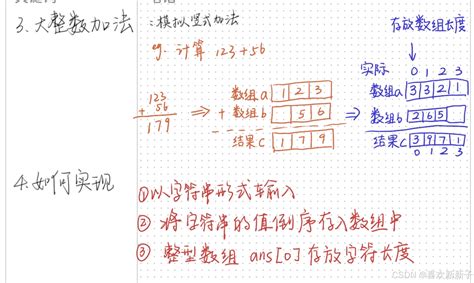 3.大整数加法:模拟竖式加法
eg. 计算 123+56
存放数组长度
实际 0 1 2 3
123
+ 56
179
⇒
数组a 1 2 3
+ 数组b 5 6
结果c 1 7 9
⇒
数组a 3 3 2 1
数组b 2 6 5
结果c 3 9 7 1
0 1 2 3
4.如何实现
①以字符串形式输入
② 将字符串的值倒序存入数组中
③ 整型数组 ans[0]存放字符长度
CSDN @喜欢新新子